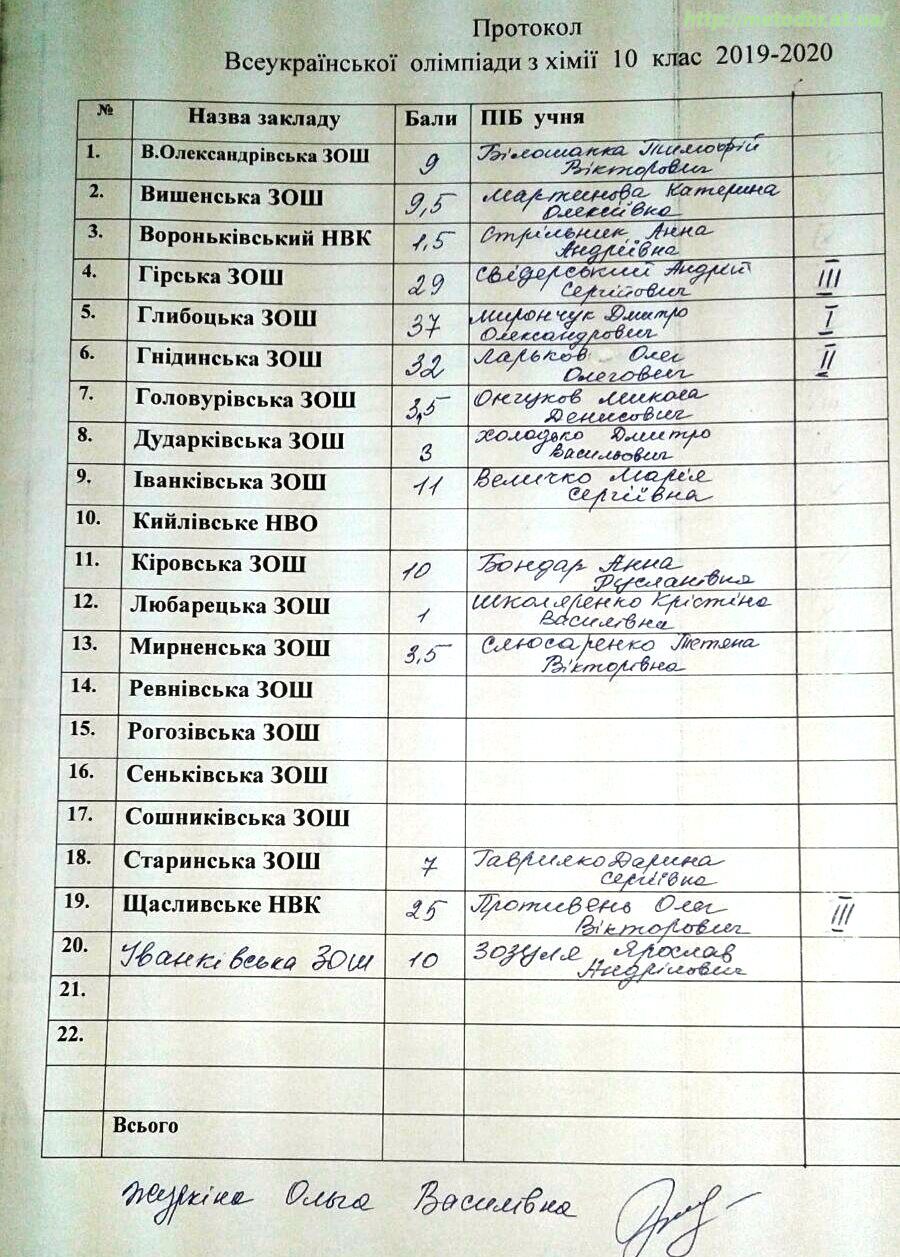 http://metodbr.at.ua/
Протокол
Всеукраїнської олімпіади з хімії 10 клас 2019-2020
№ Назва закладу Бали ПІБ учня
1. В.Олександрівська ЗОШ 9 Білошапка Тимофій
Вікторович
2. Вишенська ЗОШ 9,5 Мартинова Катерина
Олексіївна
3. Вороньківський НВК 1,5 Стрільник Анна
Андріївна
4. Гірська ЗОШ 29 Свідерський Андрій III
Сергійович
5. Глибоцька ЗОШ 37 Мирончук Дмитро I
Олександрович
6. Гнідинська ЗОШ 32 Ларьков Олег II
Олегович
7. Головурівська ЗОШ 3,5 Микола
Денисович
8. Дударківська ЗОШ 3 Холодько Дмитро
Васильович
9. Іванківська ЗОШ 11 Величко Марія
Сергіївна
10. Кийлівське НВО
11. Кіровська ЗОШ 10 Бондар Анна
Русланівна
12. Любарецька ЗОШ 1 Школяренко Крістіна
Василівна
13. Мирненська ЗОШ 3,5 Слюсаренко Тетяна
Вікторівна
14. Ревнівська ЗОШ
15. Рогозівська ЗОШ
16. Сеньківська ЗОШ
17. Сошниківська ЗОШ
18. Старинська ЗОШ 7 Гаврилко Дарина
Сергіївна
19. Щасливське НВК 25 Противень Олег III
Вікторович
20. Іванківська ЗОШ 10 Зозуля Ярослав
Андрійович
21.
22.
Всього
Журкіна Ольга Василівна